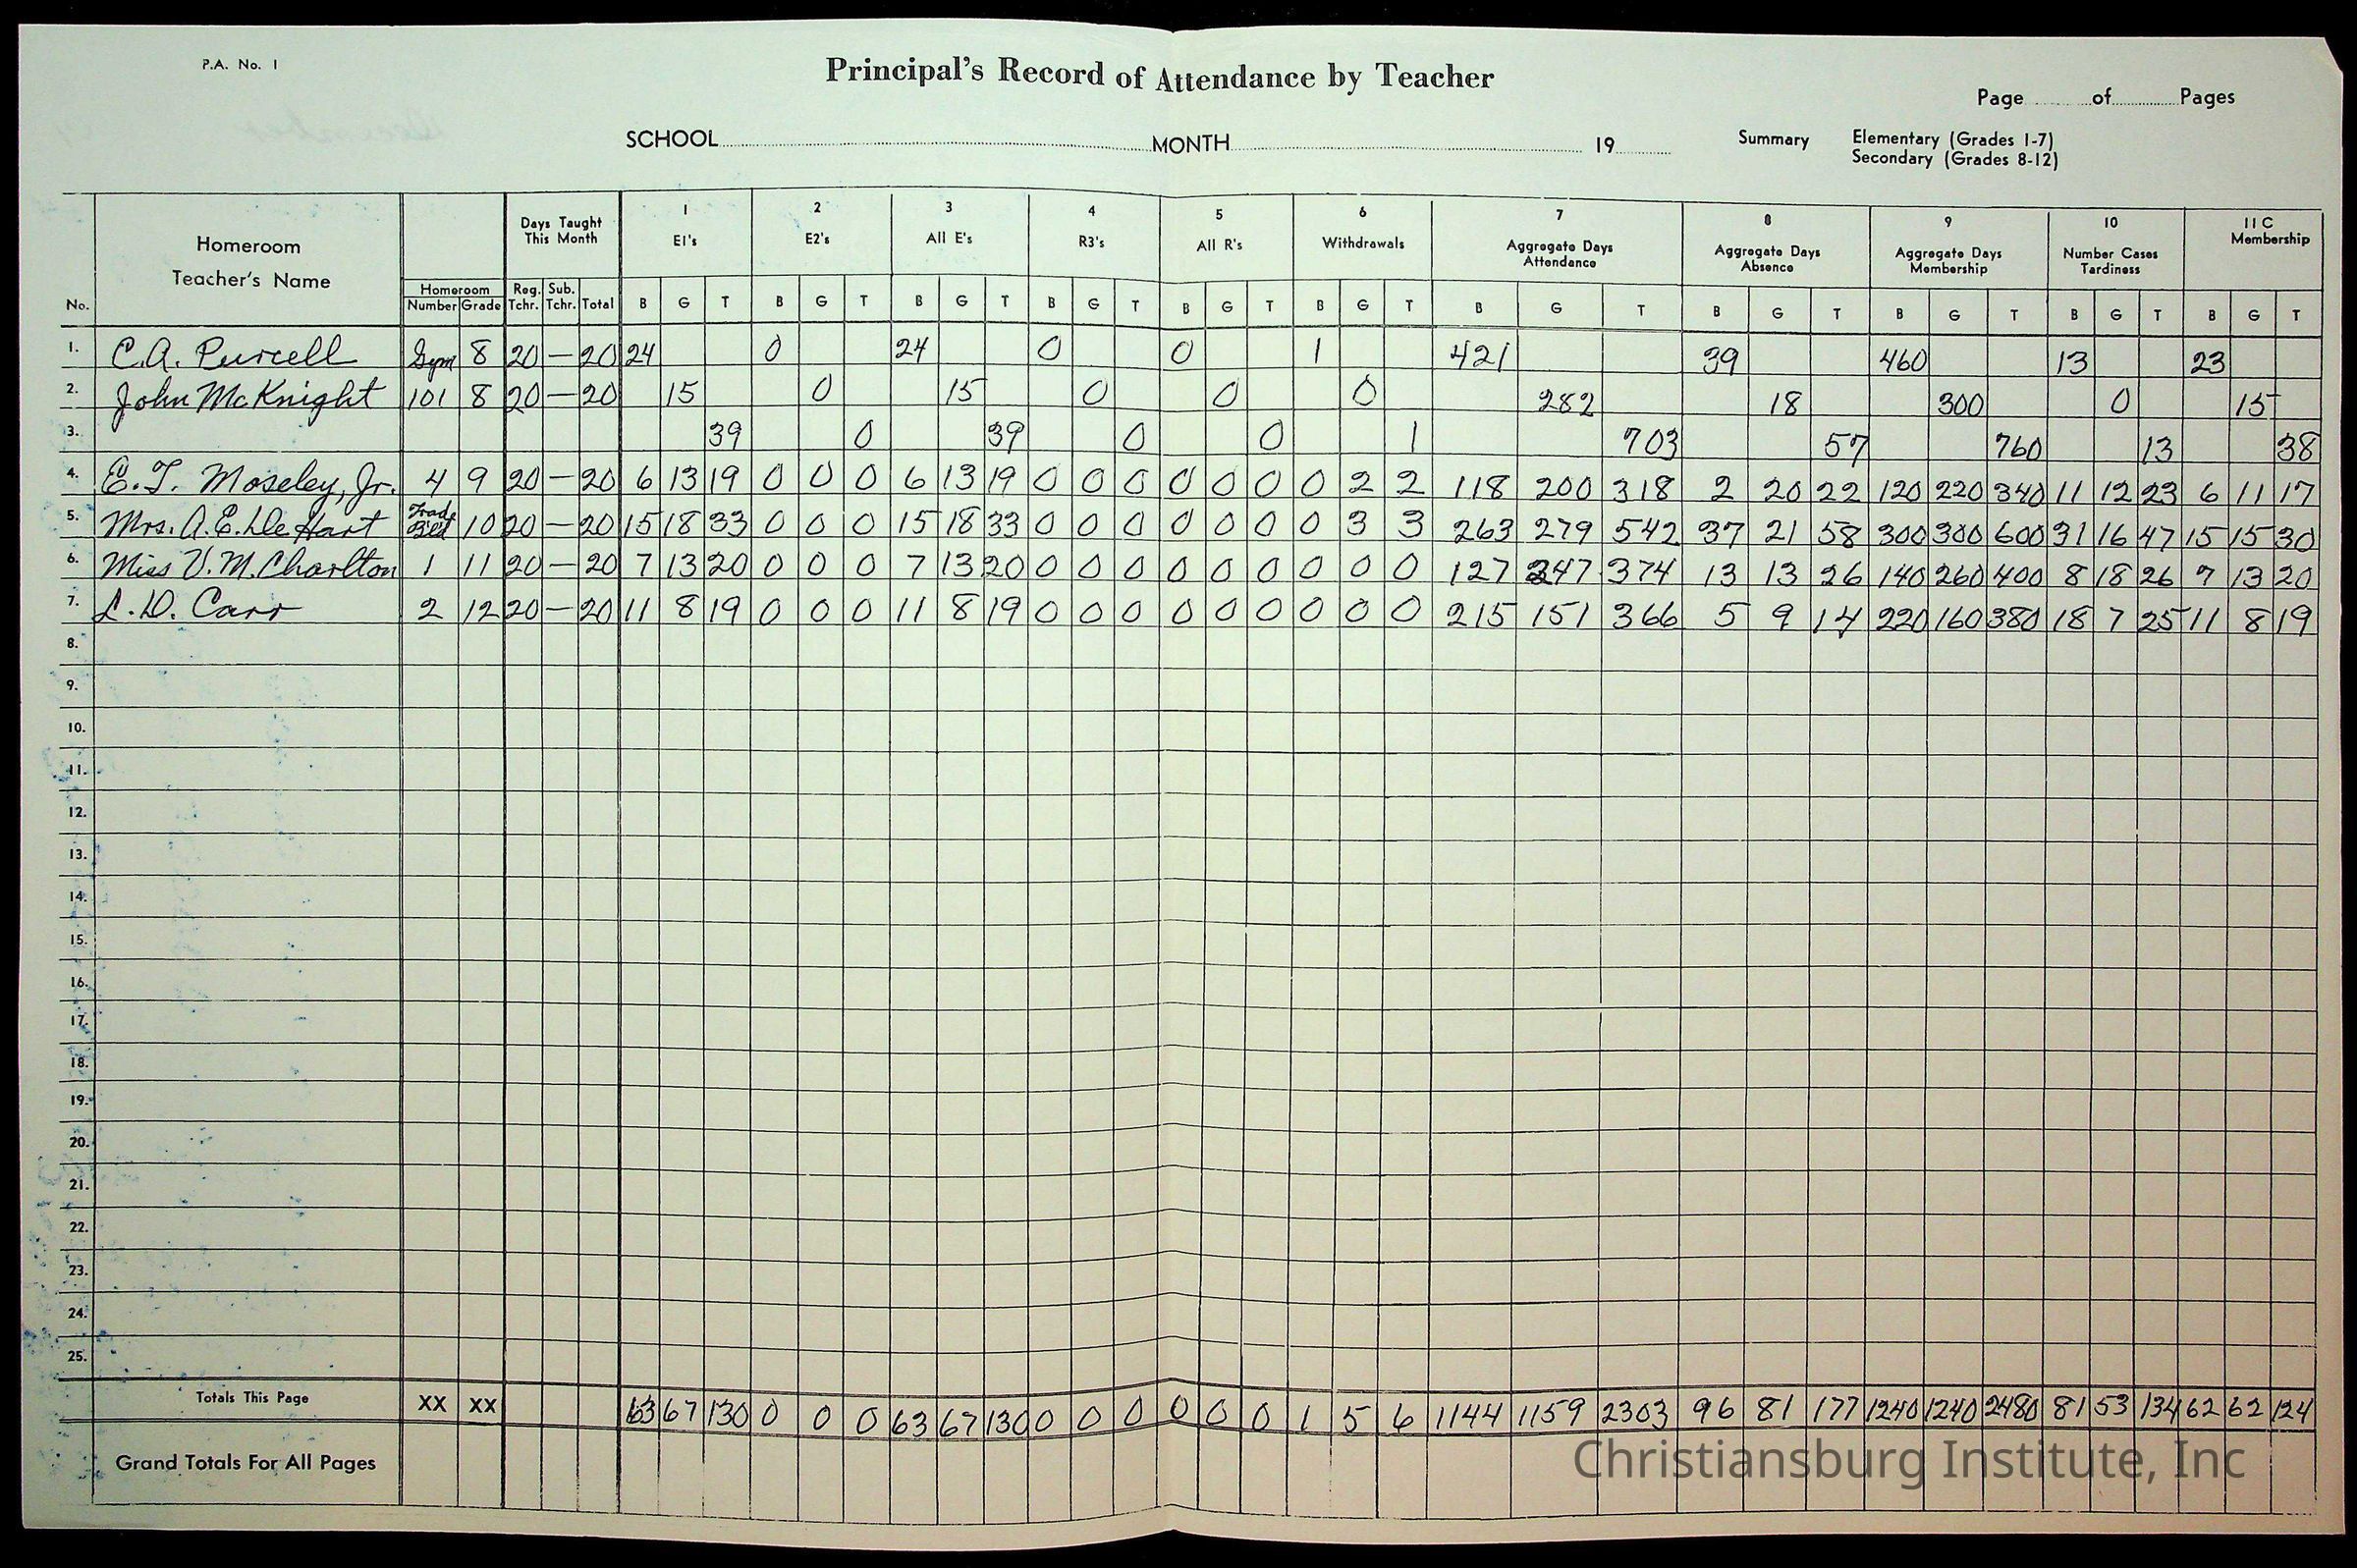 P.A. No. 1
Principal's Record of Attendance by Teacher
Page.............of.............Pages
SCHOOL............MONTH............19............ Summary Elementary (Grades 1-7)
Secondary (Grades 8-12)
No. Homeroom Teacher's Name Homeroom Number Grade Days Taught This Month Reg. Tchr. Sub. Tchr. Total 1 E1's 2 E2's 3 All E's 4 R3's 5 All R's 6 Withdrawals 7 Aggregate Days Attendance 8 Aggregate Days Absence 9 Aggregate Days Membership 10 Number Cases Tardiness 11 C Membership
B G T B G T B G T B G T B G T B G T B G T B G T B G T B G T B G T
1. C.A. Purcell Gym 8 20 — 20 24 0 24 0 0 1 421 39 460 13 23
2. John McKnight 101 8 20 — 20 15 0 15 0 0 0 282 18 300 0 15
3. 39 0 39 0 0 1 703 57 760 13 38
4. E.T. Moseley, Jr. 4 9 20 — 20 6 13 19 0 0 0 6 13 19 0 0 0 0 0 0 0 2 2 118 200 318 2 20 22 120 220 340 11 12 23 6 11 17
5. Mrs. A.E. DeHart Trade Bld 10 20 — 20 15 18 33 0 0 0 15 18 33 0 0 0 0 0 0 0 3 3 263 279 542 37 21 58 300 300 600 31 16 47 15 15 30
6. Miss V.M. Charlton 1 11 20 — 20 7 13 20 0 0 0 7 13 20 0 0 0 0 0 0 0 0 0 127 247 374 13 13 26 140 260 400 8 18 26 7 13 20
7. L.D. Carr 2 12 20 — 20 11 8 19 0 0 0 11 8 19 0 0 0 0 0 0 0 0 0 215 151 366 5 9 14 220 160 380 18 7 25 11 8 19
8.
9.
10.
11.
12.
13.
14.
15.
16.
17.
18.
19.
20.
21.
22.
23.
24.
25.
Totals This Page XX XX 63 67 130 0 0 0 63 67 130 0 0 0 0 0 0 1 5 6 1144 1159 2303 96 81 177 1240 1240 2480 81 53 134 62 62 124
Grand Totals For All Pages
Christiansburg Institute, Inc